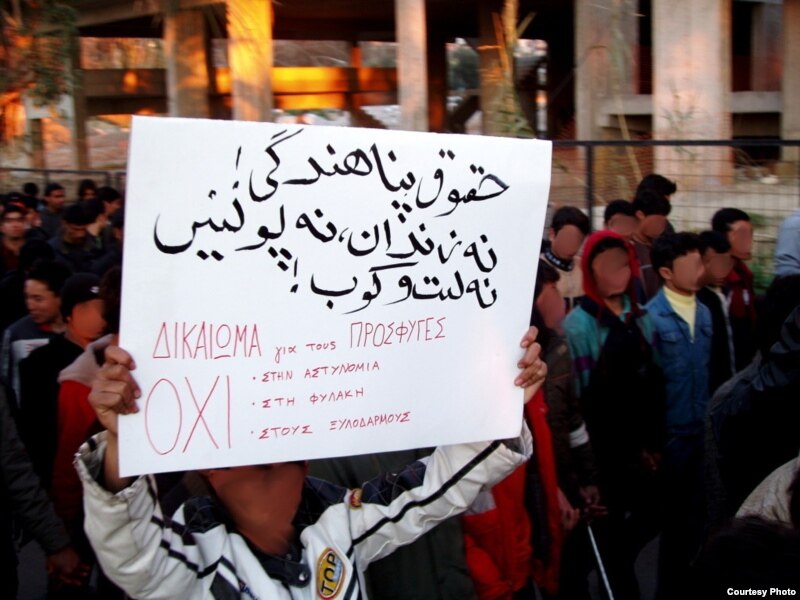 حقوق پناهندگی!
نه زندان، نه پولیس
نه لت و کوب!
ΔΙΚΑΙΩΜΑ για τους ΠΡΟΣΦΥΓΕΣ
ΟΧΙ
· ΣΤΗΝ ΑΣΤΥΝΟΜΙΑ
· ΣΤΗ ΦΥΛΑΚΗ
· ΣΤΟΥΣ ΞΥΛΟΔΑΡΜΟΥΣ
TOP
Courtesy Photo